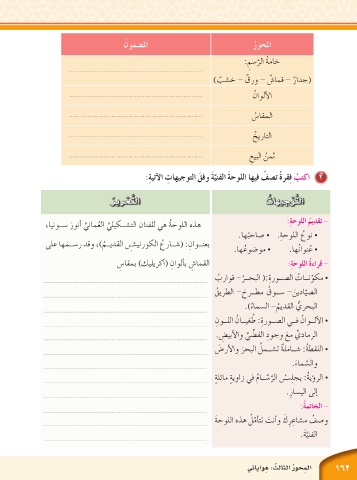 المحورُ
المضمونُ
خامةُ الرّسمِ:
(جدارٌ – قماشٌ – ورقٌ – خشبٌ)
الألوانُ
المقاسُ
التاريخُ
ثمنُ البيعِ
٢ اكتبْ فِقرةً تصفُ فيها اللوحةَ الفنيّةَ وفقَ التوجيهاتِ الآتيةِ:
التَّوْجِيهَاتُ
التَّعْبِيرُ
– تقديمُ اللوحةِ:
• نوعُ اللوحةِ. • صاحبُها.
• عُنوانُها. • موضوعُها.
– قراءةُ اللوحةِ:
• مكوّنـاتُ الصـورةِ:( البحـرُ– قواربُ
الصيّادينَ– سـوقُ مطـرحَ– الطريقُ
البحريُّ القديمُ– السماءُ).
• الألـوانُ فـي الصـورةِ: طُغيـانُ اللـونِ
الرماديِّ معَ وجودِ الفضّيِّ والأبيضِ.
• اللقطةُ: شـاملـةٌ تشمـلُ البحرَ والأرضَ
والسّماءَ.
• الرؤيةُ: يجلسُ الرّسّـامُ في زاويةٍ مائلةٍ
إلى اليسارِ.
– الخاتمةُ:
وصفُ مشاعرِكَ وأنتَ تتأمّلُ هذهِ اللوحةَ
الفنّيّةَ.
هذه اللوحةُ هي للفنانِ التشـكيليِّ العُمانيِّ أنورَ سـونيا،
بعنـوانِ: (شـارعُ الكورنيشِ القديـمِ)، وقد رسـمَها على
القماشِ بألوانِ (أكريليك) بمقاسِ
١٦٢
المحورُ الثالثُ: هواياتي